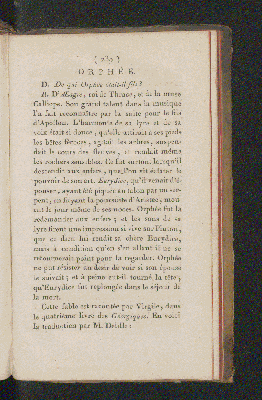 ORPHÉE.
D. De qui Orphée était-il fils ?
R. D'Æagre, roi de Thrace, et de la muse
Calliope. Son grand talent dans la musique
l'a fait reconnaître par la suite pour le fils
d'Apollon. L'harmonie de sa lyre et de sa
voix était si douce, qu'elle attirait à ses pieds
les bêtes féroces, agitait les arbres, suspen-
dait le cours des fleuves, et rendait même
les rochers sensibles. Ce fut surtout lorsqu'il
descendit aux enfers, que l'on vit éclater le
pouvoir de son art. Eurydice, qu'il venait d'é-
pouser, ayant été piquée au talon par un ser-
pent, en fuyant la poursuite d'Aristée, mou-
rut le jour même de ses noces. Orphée fut la
redemander aux enfers ; et les sons de sa
lyre firent une impression si vive sur Pluton,
que ce dieu lui rendit sa chère Eurydice,
mais à condition qu'en s'en allant il ne se
retournerait point pour la regarder. Orphée
ne put résister au désir de voir si son épouse
le suivait ; et à peine eut-il tourné la tête,
qu'Eurydice fut replongée dans le séjour de
la mort.
Cette fable est racontée par Virgile, dans
le quatrième livre des Géorgiques. En voici
la traduction par M. Delille :